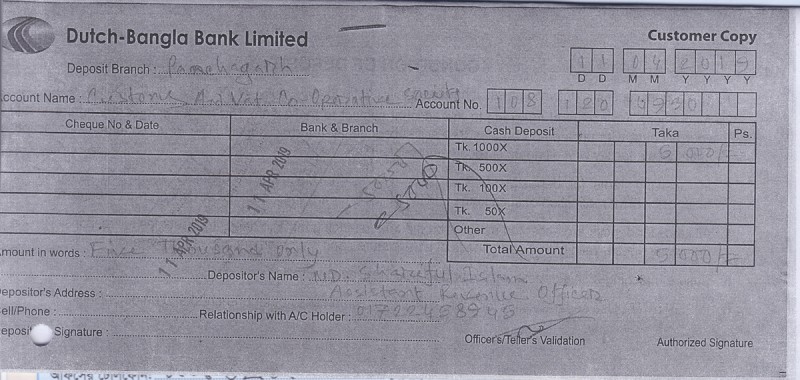 Dutch-Bangla Bank Limited
Customer Copy
Deposit Branch : Panchagarh
11 04 2019
D D M M Y Y Y Y
ccount Name : Customs And Vat Co-Operative Society Account No. 108 120
Cheque No & Date Bank & Branch Cash Deposit Taka Ps.
Tk. 1000X 5 000/=
Tk. 500X
Tk. 100X
Tk. 50X
Other
Total Amount 5 000/=
11 APR 2019
11 APR 2019
5000
5000
mount in words : Five Thousand only
Depositor's Name : MD. Shareeful Islam
epositor's Address : Assistant Revenue Officer
ell/Phone : Relationship with A/C Holder :
eposi Signature :
Officer's/Teller's Validation
Authorized Signature